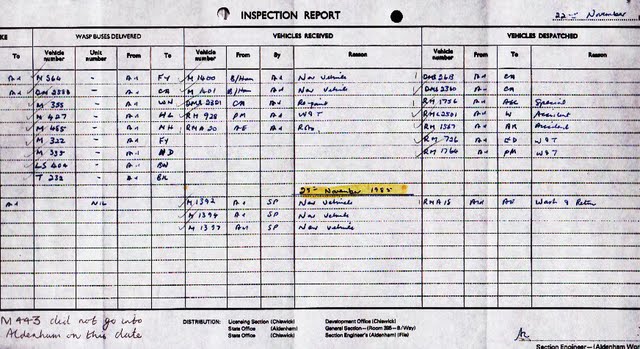 INSPECTION REPORT
22nd November
KE WASP BUSES DELIVERED VEHICLES RECEIVED VEHICLES DESPATCHED
To Vehicle number Unit number From To Vehicle number From By Reason Vehicle number From To Reason
Ad M 364 - Ad FY M 1400 B/Ham Ad New Vehicle DMS 2613 Ad
Ad - Ad M 1401 B/Ham Ad New Vehicle DMS 2360 Ad
M 355 - Ad WN DMS 2301 Ad Re-paint RM 1756 Ad ASC Special
M 427 - Ad HL RM 928 PM Ad W&T Ad W Accident
M 465 - Ad NH RMA 20 AE Ad Ad AR Accident
M 322 - Ad FY RM 726 Ad ED W&T
M 395 - Ad HD RM 1764 Ad PM W&T
LS 404 - Ad BW
T 232 - Ad BK
25th November 1985
Ad NIL M 1392 Ad SP New Vehicle RMA 15 AE Wash & Return
M 1394 Ad SP New Vehicle
M 1397 Ad SP New Vehicle
M 443 did not go into
Aldenham on this date
DISTRIBUTION: Licensing Section (Chiswick) Development Office (Chiswick)
State Office (Aldenham) General Section—(Room 395-B/Way)
State Office (Chiswick) Section Engineer's (Aldenham) (File)
Section Engineer—(Aldenham Wor